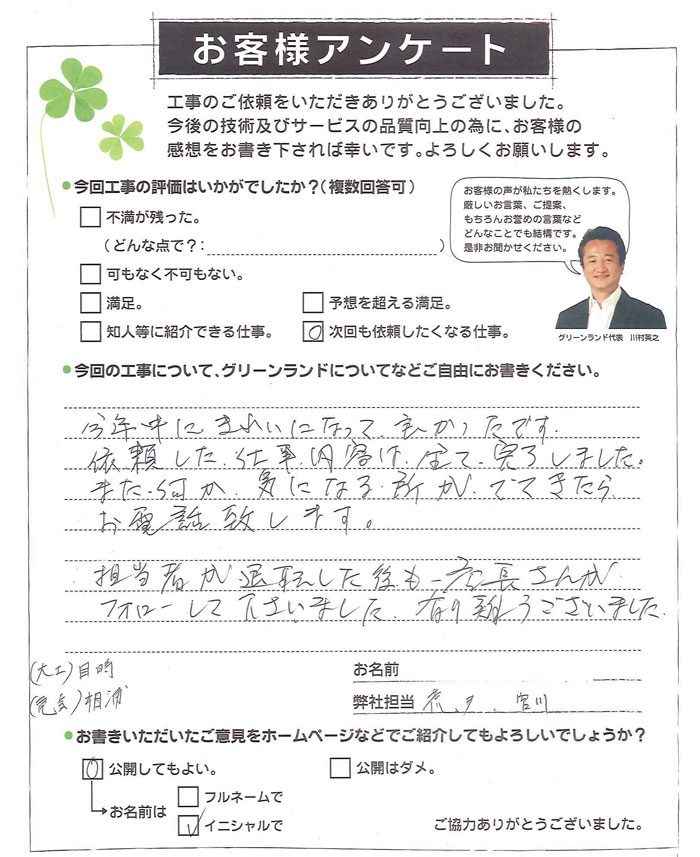 お客様アンケート
工事のご依頼をいただきありがとうございました。
今後の技術及びサービスの品質向上の為に、お客様の
感想をお書き下されば幸いです。よろしくお願いします。
今回工事の評価はいかがでしたか？（複数回答可）
不満が残った。
（どんな点で？：　）
可もなく不可もない。
満足。　予想を超える満足。
知人等に紹介できる仕事。　次回も依頼したくなる仕事。
お客様の声が私たちを熱くします。
厳しいお言葉、ご提案、
もちろんお誉めの言葉など
どんなことでも結構です。
是非お聞かせください。
グリーンランド代表　川村英之
今回の工事について、グリーンランドについてなどご自由にお書きください。
今年中にきれいになって、良かったです。
依頼した仕事内容は、全て、完了しました。
また、何か、気になる所が、でてきたら
お電話致します。
担当者が退転した後も、店長さんが
フォローして下さいました。有り難うございました。
(大工)目時
(電気)相浦
お名前
弊社担当　宮川
お書きいただいたご意見をホームページなどでご紹介してもよろしいでしょうか？
公開してもよい。　公開はダメ。
お名前は
フルネームで
イニシャルで
ご協力ありがとうございました。